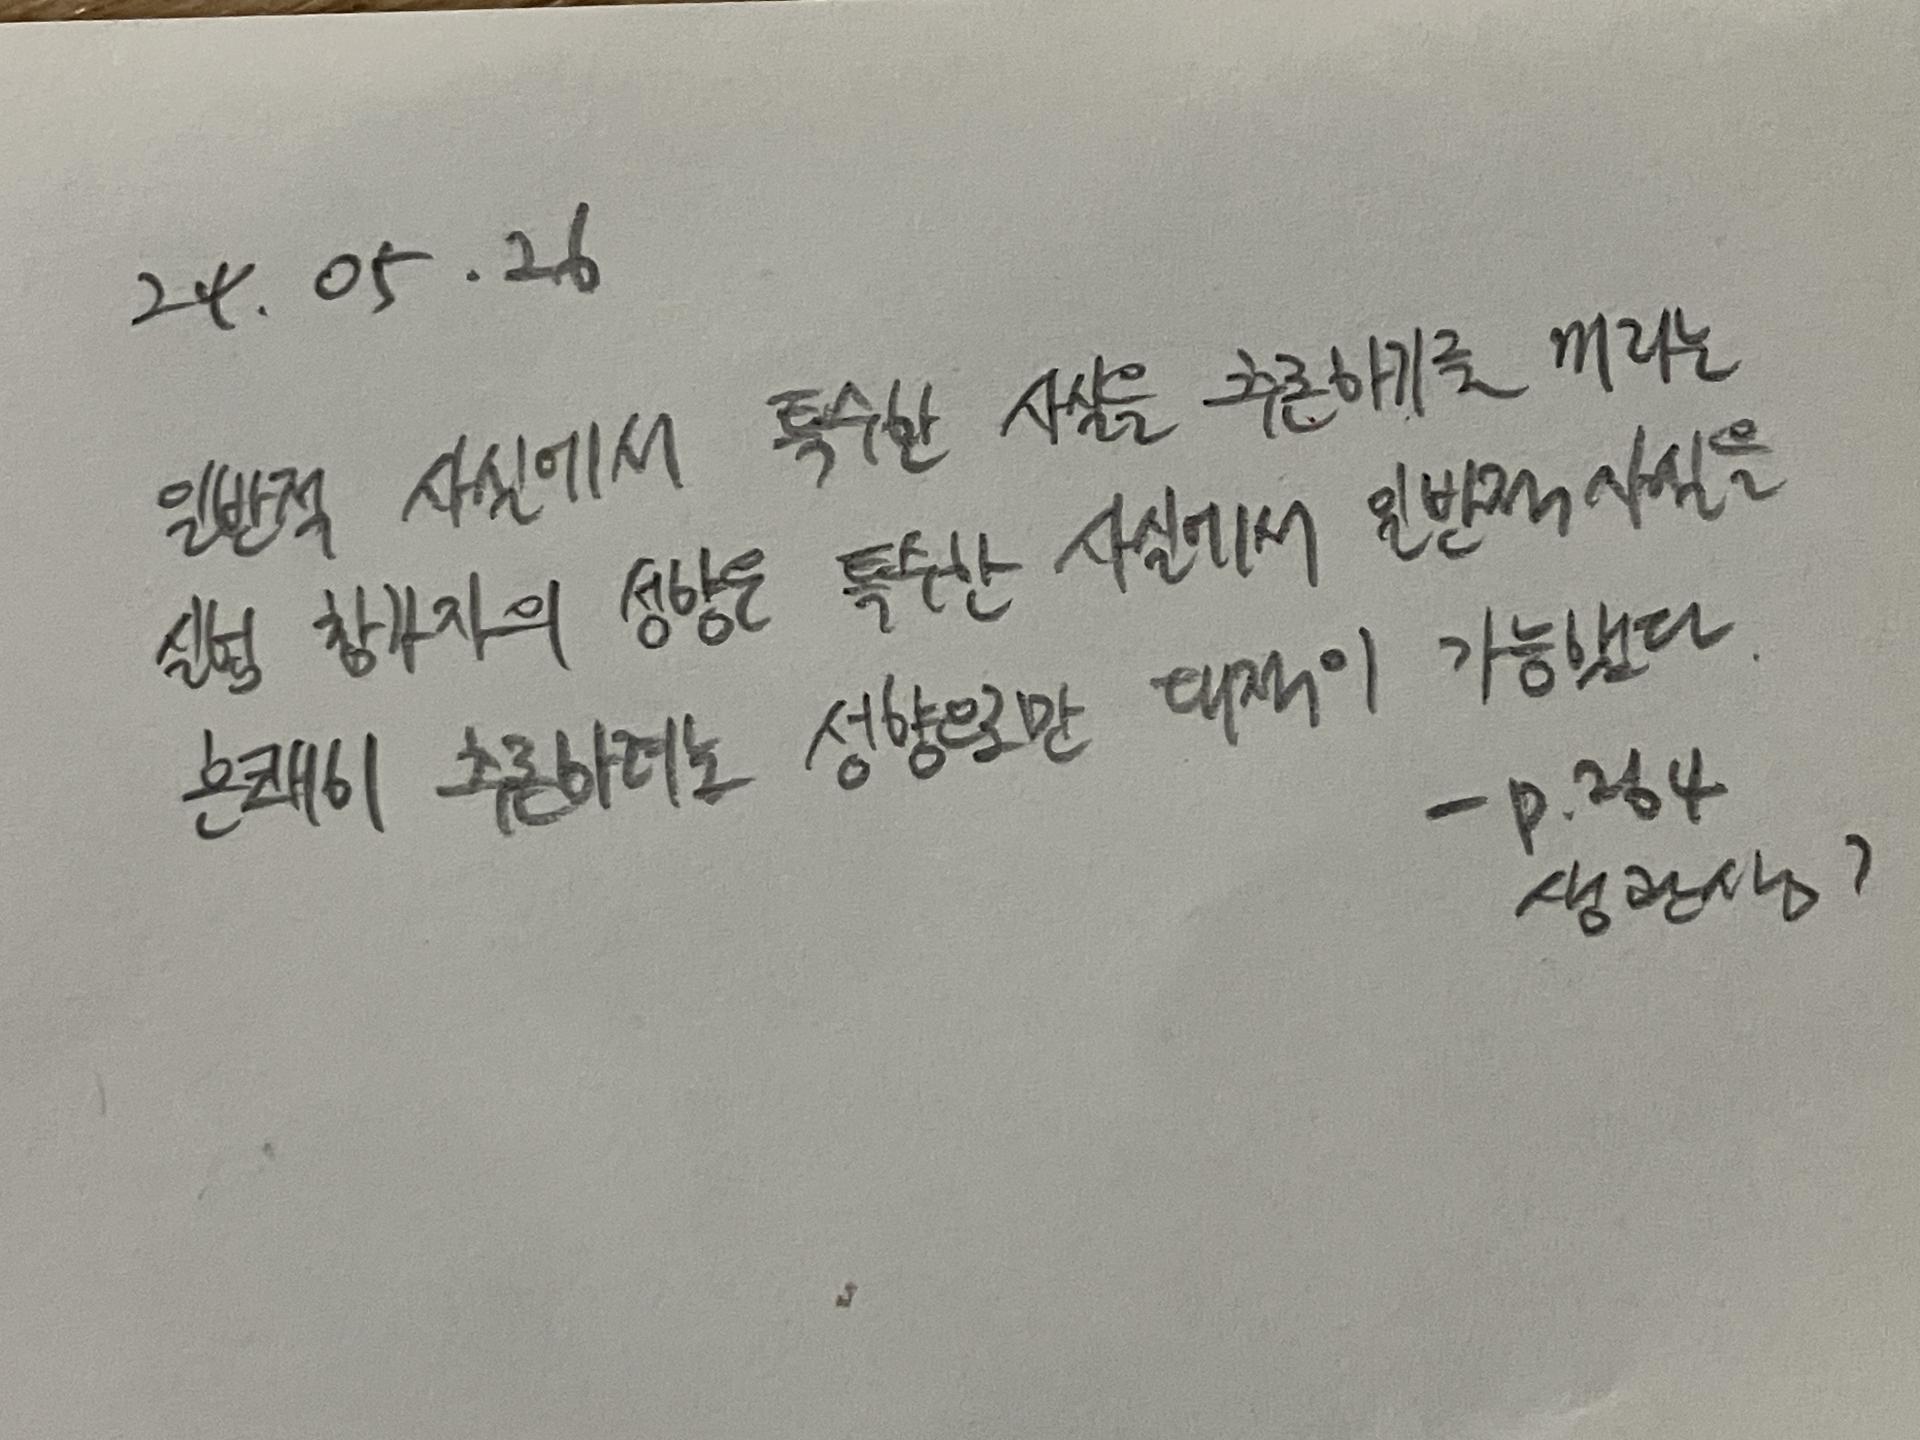 24. 05. 26
일반적 사실에서 특수한 사실을 추론하기를 꺼리는
실험 참가자의 성향은 특수한 사실에서 일반적 사실을
흔쾌히 추론하려는 성향으로만 대적이 가능했다.
- p.264
생각